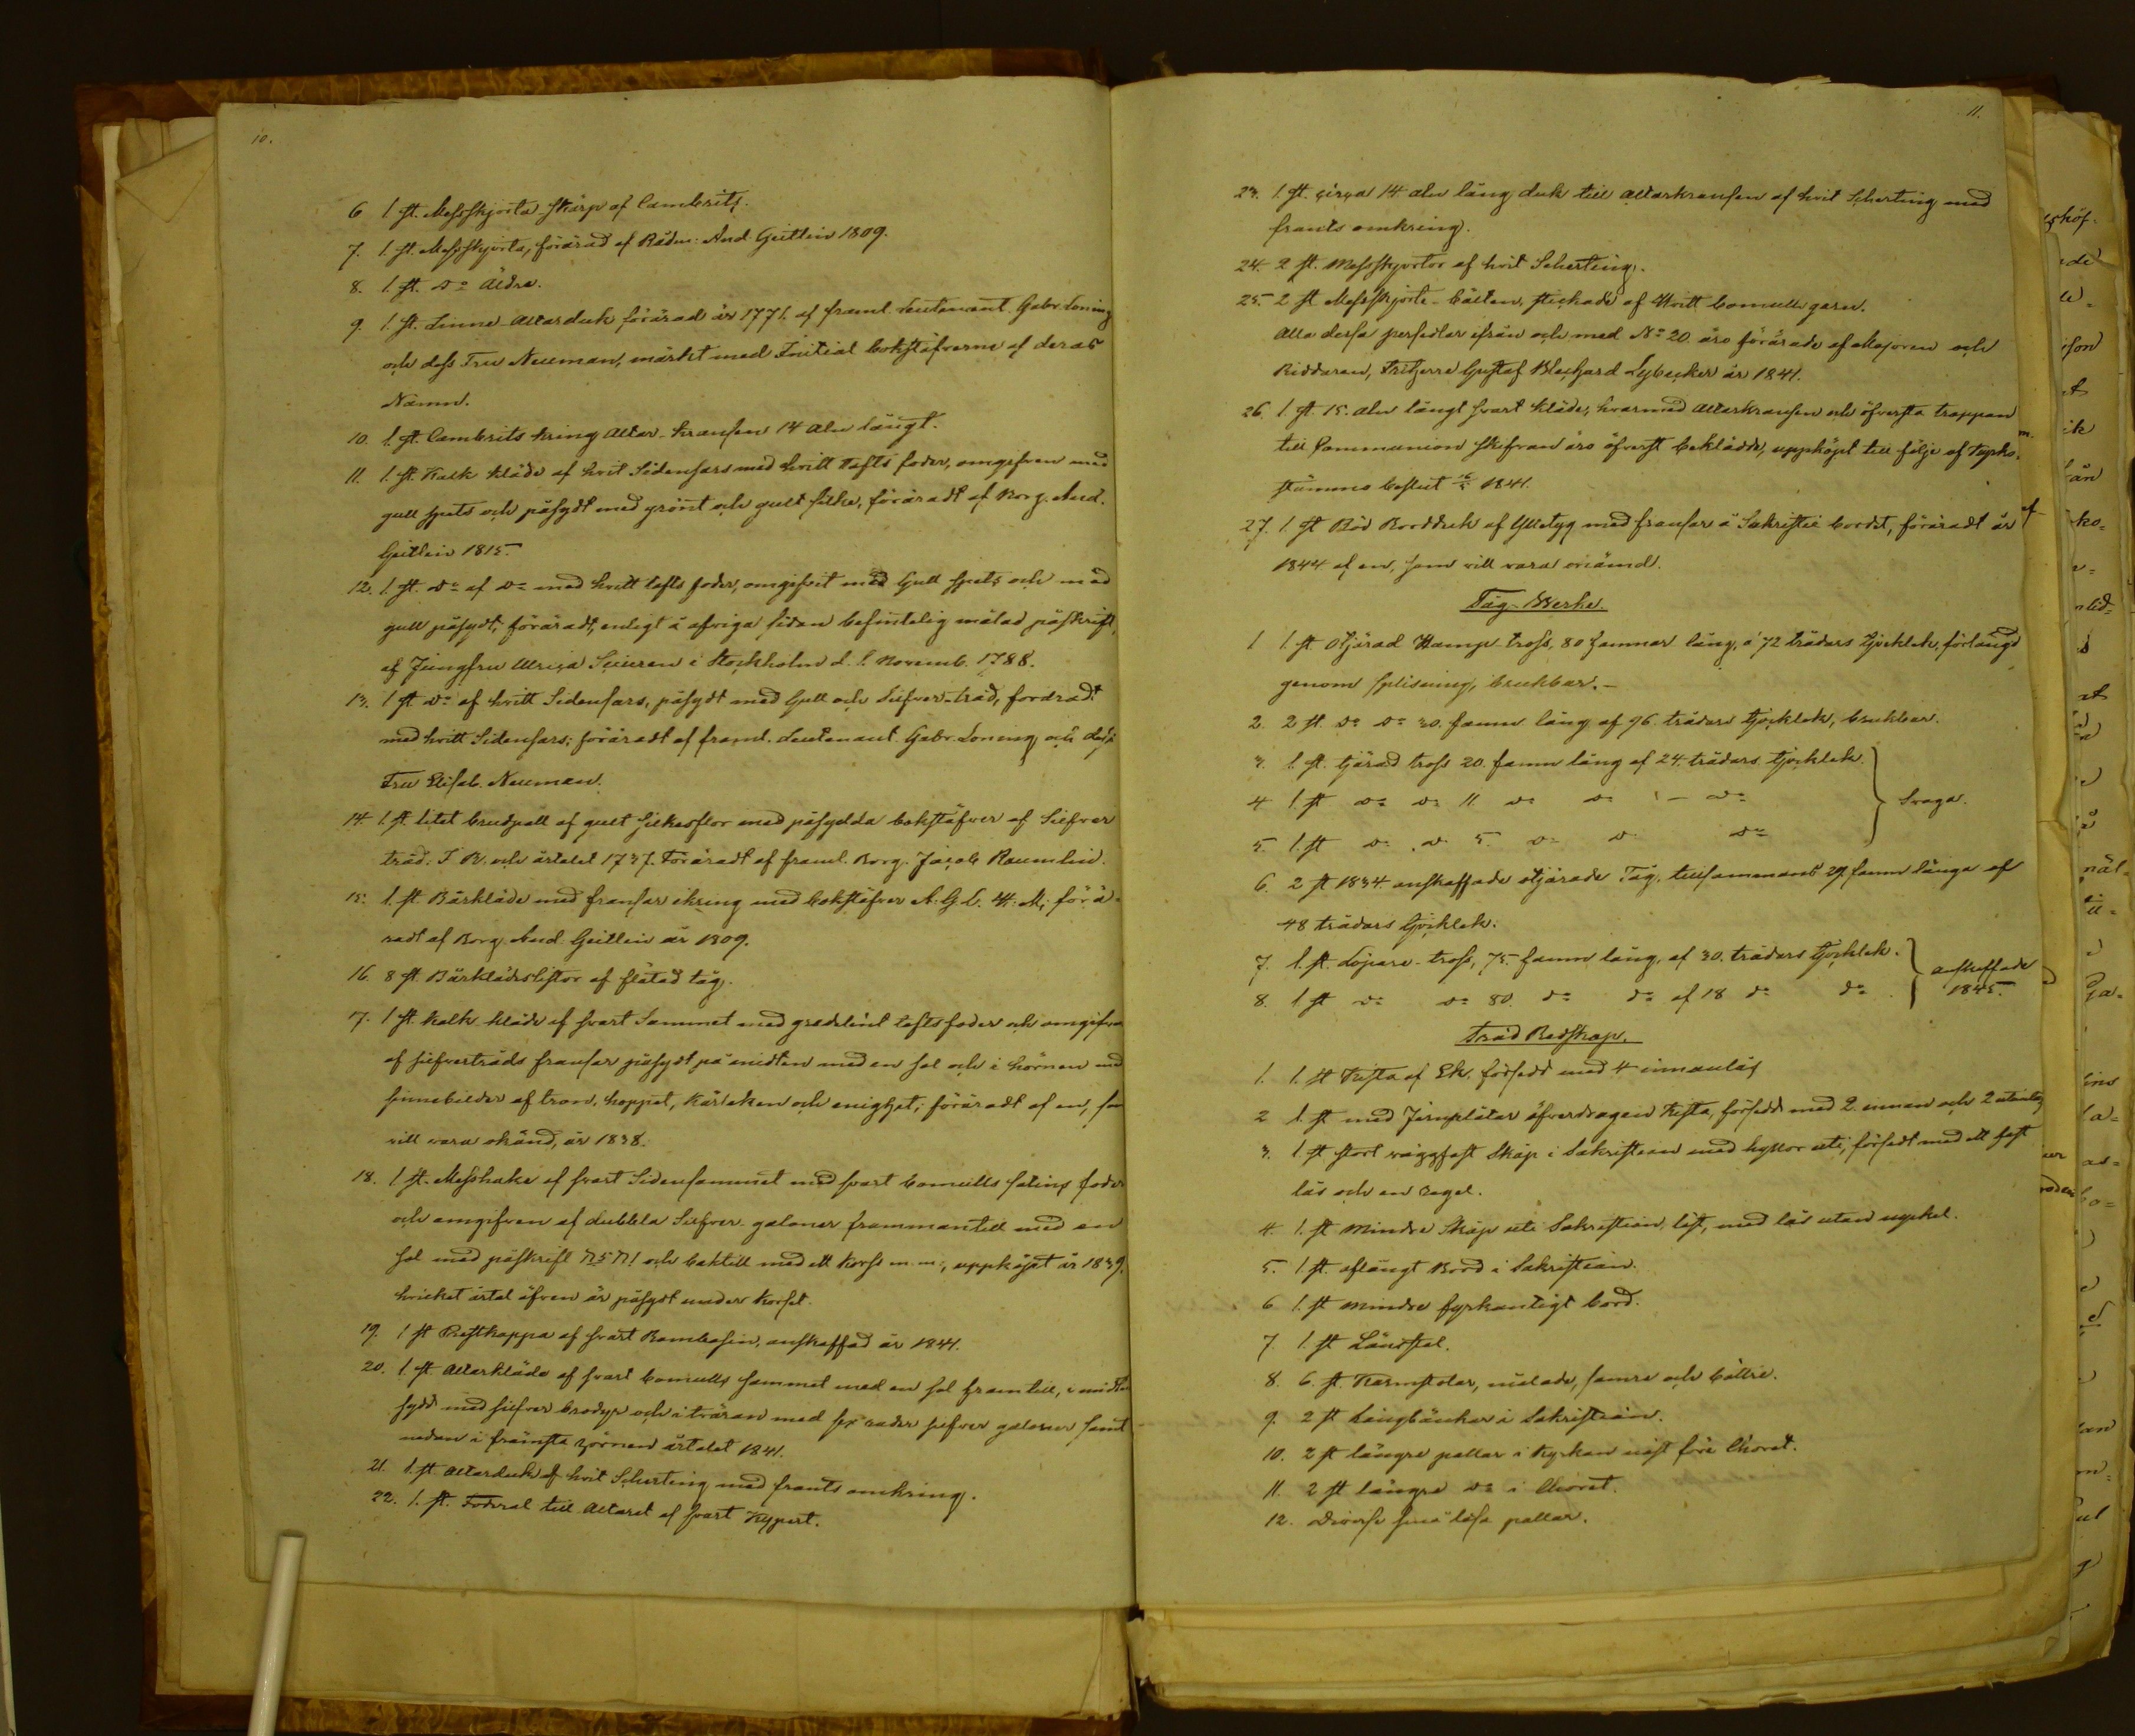 10.
6 1 st. Messskjorta-skärp af Cambrits.
7. 1. st. Messskjorta, förärad af Rådm: And. Geitlin 1809.
8. 1. st. Do Äldre.
9. 1. st. Linne-Altarduk förärad år 1771. af framl. Leutenant Gabr. Loning
och dess Fru Neuman, märkt med Initial bokstäfverne af deras
Namn.
10. 1. st. Cambrits kring Altar-kransen 14 aln långt.
11. 1. st. Kalk kläde af hvit Sidensars med hvitt tafts foder, omgifven med
gull spets och påsydt med grönt och gult silke, föräradt af Borg. And.
Geitlin 1815.
12. 1. st. Do af Do med hvitt tafts foder, omgifvit med Gull spets och med
gull påsydt, föräradt, enligt å afviga sidan befintelig målad påskrift,
af Jungfru Ulrica i Stockholm d. 1. Novemb. 1788.
13. 1 st. Do af hvitt Sidensars, påsydt med Gull och Silfver-tråd, fordradt
med hvitt Sidensars; förärадt af framl. Leutenant Gabr. Loning och dess
Fru Elisab. Neuman.
14. 1. st. litet brudpell af gult silkesflor med påsydda bokstäfver af Silfver
tråd: I. R. och årtalet 1737. Förärадt af framl. Borg. Jacob Raumlin.
15. 1. st. Bårkläde med fransar ikring med bokstäfver A. G. C. H. M; förä-
radt af Borg. And. Geitlin år 1809.
16. 8 st. Bårklädslistor af flätad tåg.
17. 1 st. Kalk-kläde af svart Sammet med gredelint tafts foder och omgifven
af silfvertråds fransar påsydt på midten med en sol och i hörnen med
sinnebilder af tron, hoppet, Kärleken och enighet; förärадt af en, som
vill vara okänd, år 1838.
18. 1 st. Messhake af svart Sidensammet med svart bomulls satins foder
och omgifven af dubbla Silfver-galoner frammantill med en
sol med påskrift och baktill med ett Kors m. m., uppköpt år 1839.
hvilket årtal äfven är påsydt under Korset.
19. 1 st Prestkappa af svart Bombasin, anskaffad år 1841.
20. 1. st. Altarkläde af svart bomulls sammet med en sol framtill, i midten
sydd med silfver brodyr och i tväran med sex rader silfver galoner samt
nedan i främsta hörnen årtalet 1841.
21. 1. st. Altarduk af hvit Schirting med frants omkring.
22. 1. st. Foderal till Altaret af svart Kypert.
11.
23. 1. st. circa 14 aln lång duk till Altarkransen af hvit Scherting med
frants omkring.
24. 2 st. Messskjortor af hvit Scherting.
25. 2 st Messskjorte-bälten, stickade af Hvitt bomulls garn.
Alla dessa persedlar ifrån och med No 20. äro förärade af Majoren och
Riddaren, Friherre Gustaf Blechard Lybecker år 1841.
26. 1. st. 15. aln långt svart kläde, hvarmed Altarkransen och öfversta trappan
till Communion skifvan äro öfverst beklädde, uppköpt till följe af Kyrko-
stämmo beslut 1841.
27. 1. st Röd Borddruk af Ylletyg med fransar å Sakristie bordet, förärадt år
1844 af en, som vill vara onämd.
Tåg-Werke.
1 1. st Otjärad Hamp-tross, 80 famnar lång, á 72 trådars tjocklek, förlängd
genom splisning, brukbar.-
2. 2 st. Do Do 30. famn lång af 96. trådars tjocklek, brukbar.
3. 1. st. tjärad tross 20. famn lång af 24. trådars tjocklek.
4 1. st Do Do 11 Do Do - Do Svaga.
5. 1. st Do Do 5. Do Do Do
6. 2 st 1834 anskaffade otjärade Tåg, tillsammans 29. famn långa af
48 trådars tjocklek.
7. 1. st. Löpare-tross, 75. famn lång, af 30. trådars tjocklek. anskaffade
8. 1 st Do Do 80 Do Do af 18 Do Do. 1845.
Träd Redskap.
1. 1. st Kista af Ek, försedd med 4 innanlås
2 1. st med Jernplåtar öfverdragen Kista, försedd med 2. innan och 2 utanlås
3. 1 st stort väggfast Skåp i Sakristian med hyllor uti, försedt med ett fast
lås och en regel.
4. 1. st Mindre Skåp uti Sakristian, löst, med lås utan nyckel.
5. 1 st. aflångt Bord i Sakristian.
6 1. st Mindre fyrkantigt bord.
7. 1. st Länstol.
8. 6. st. Karmstolar, målade, sämre och bättre.
9. 2 st Långbänkar i Sakristian.
10. 2 st längre pallar i Kyrkan näst före Choret.
11. 2 st längre Do i Choret.
12. Diverse små lösa pallar.